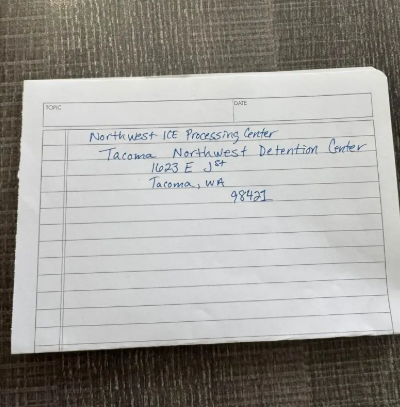 TOPIC
DATE
Northwest ICE Processing Center
Tacoma Northwest Detention Center
1623 E J St
Tacoma, WA
98421